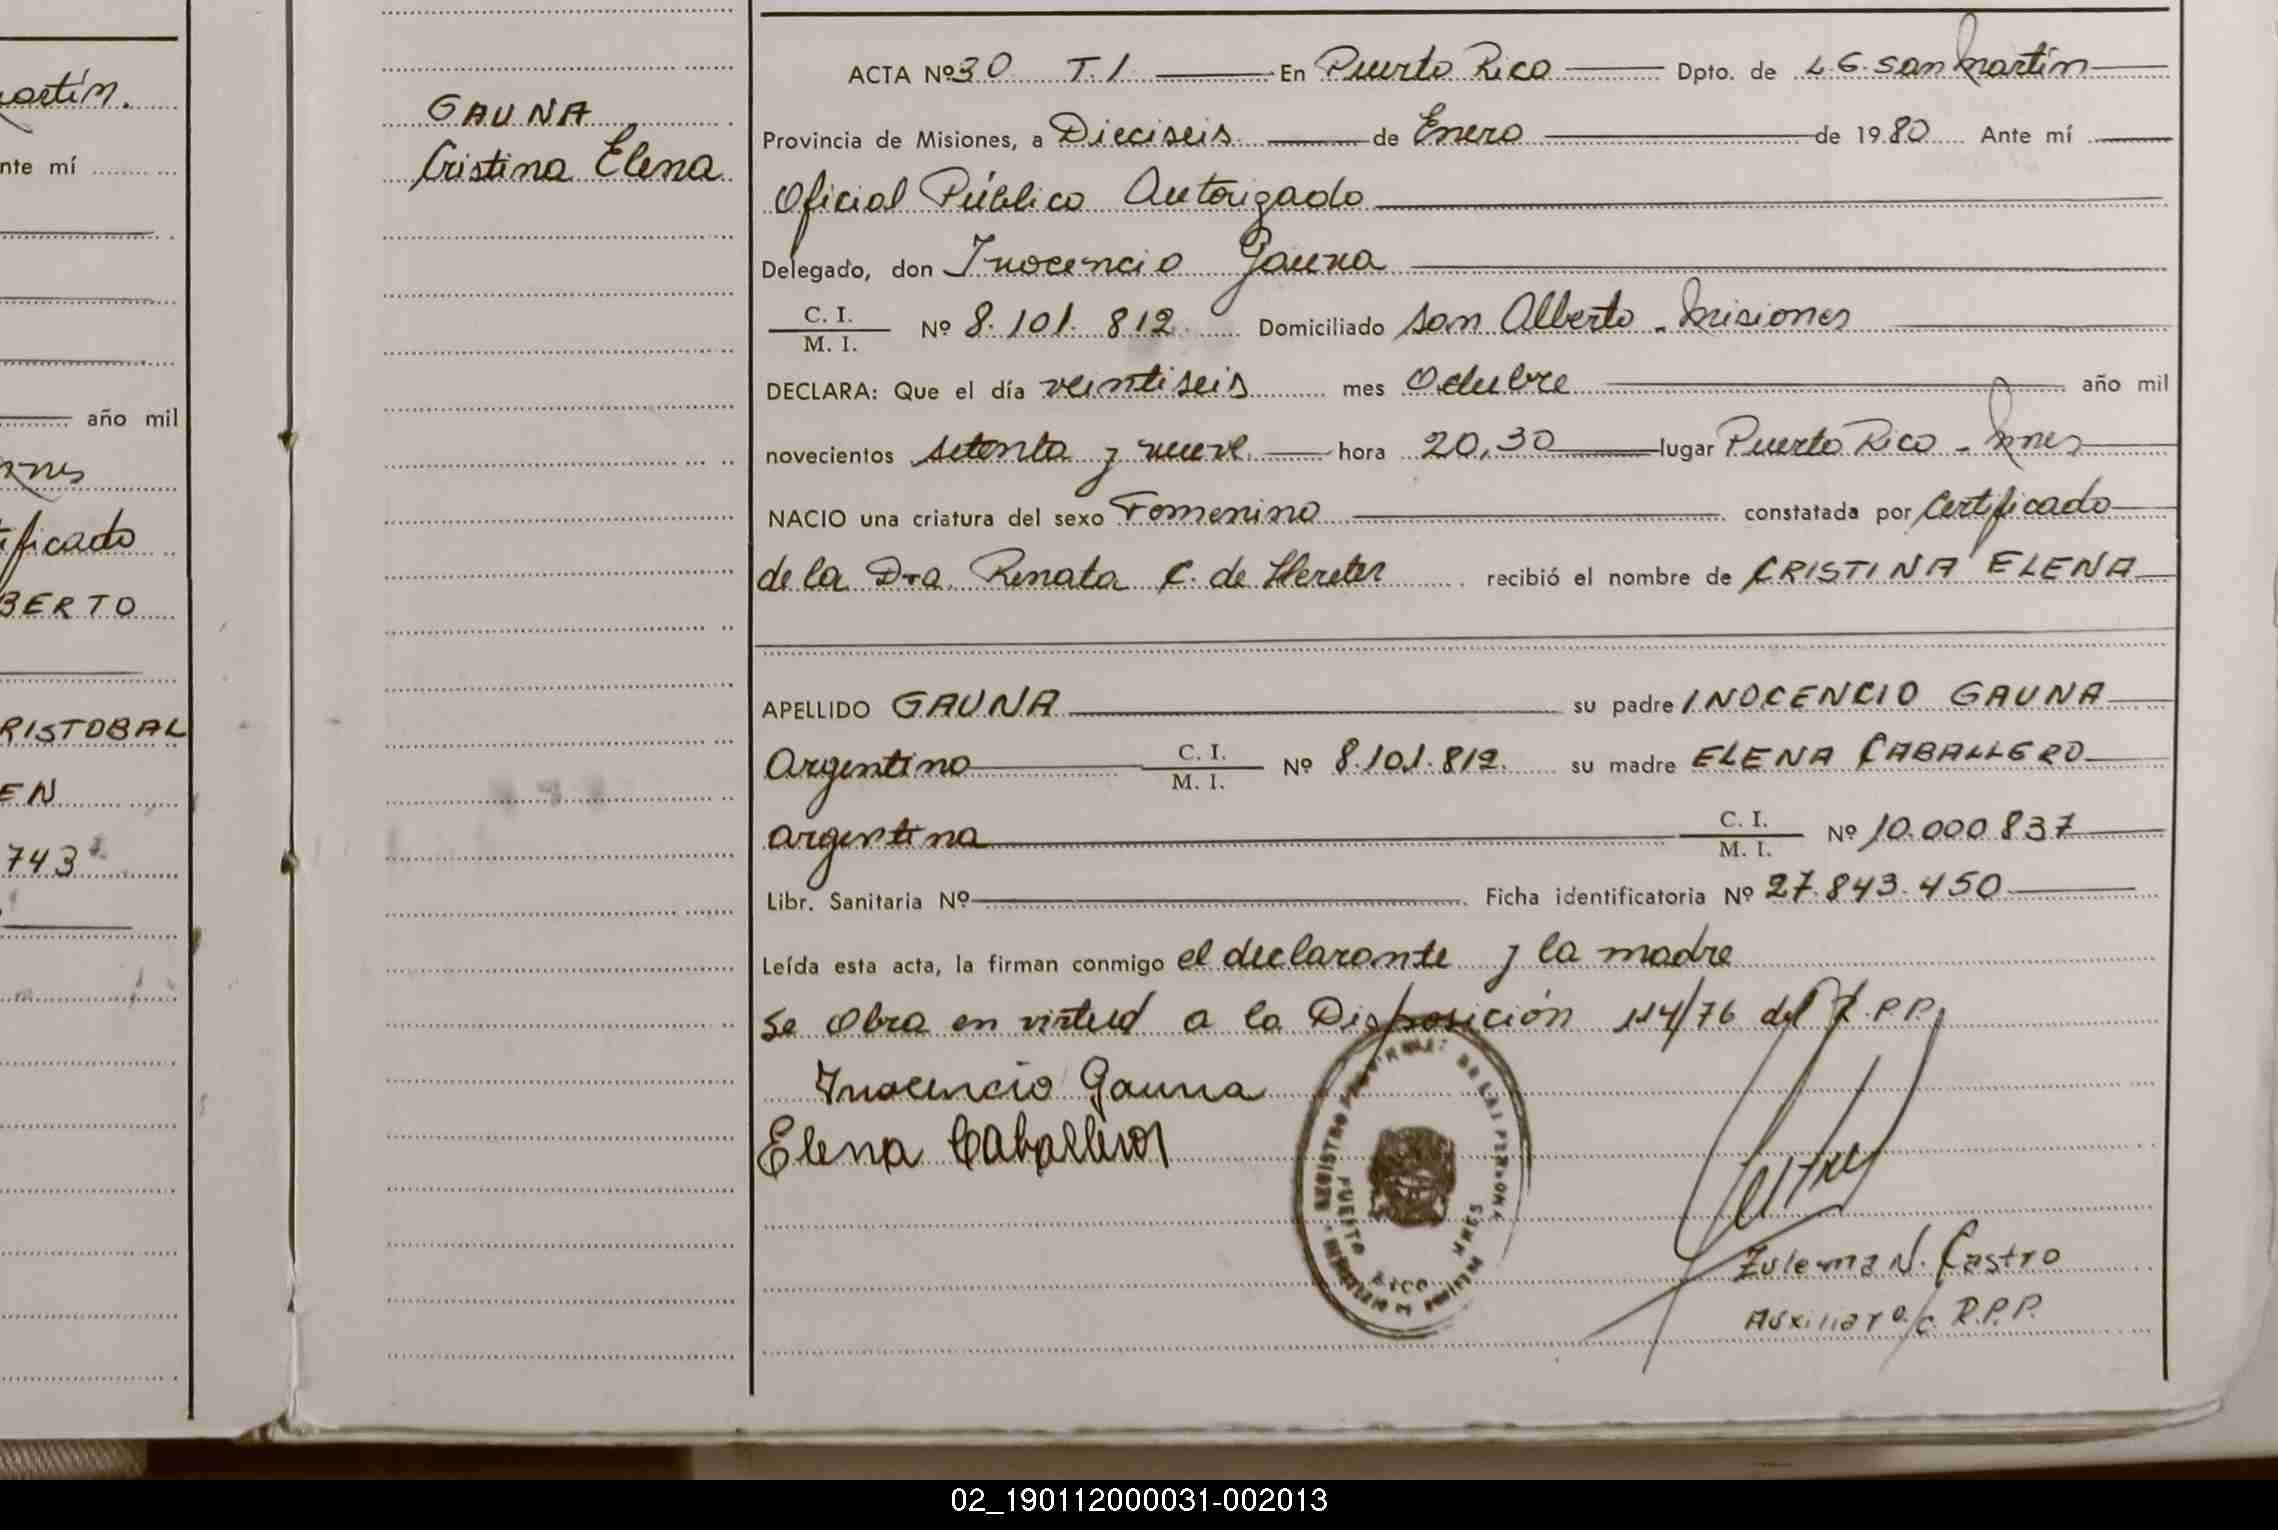 artín.
nte mí
año mil
nnes
tificado
BERTO
RISTOBAL
EN
743
GAUNA
Cristina Elena
ACTA Nº 30 T.1 En Puerto Rico Dpto. de L.G. San Martín
Provincia de Misiones, a Dieciseis de Enero de 1980 Ante mí
Oficial Público Autorizado
Delegado, don Inocencio Gauna
C. I.
M. I.
Nº 8.101.812 Domiciliado San Alberto - Misiones
DECLARA: Que el día veintiseis mes Octubre año mil
novecientos setenta y nueve hora 20,30 lugar Puerto Rico - Mnes
NACIO una criatura del sexo Femenino constatada por Certificado
de la Dra. Renata C. de Hereter recibió el nombre de CRISTINA ELENA
APELLIDO GAUNA su padre INOCENCIO GAUNA
Argentino C. I. M. I. Nº 8.101.812. su madre ELENA CABALLERO
argentina C. I. M. I. Nº 10.000.837
Libr. Sanitaria Nº Ficha identificatoria Nº 27.843.450
Leída esta acta, la firman conmigo el declarante y la madre
se obra en virtud a la Disposición 114/76 del R.P.P.
Inocencio Gauna
Elena Caballero
REGISTRO PROVINCIAL DE LAS PERSONAS
PUERTO RICO MNES
Zulema N. Castro
Auxiliar a/c R.P.P.
02_190112000031-002013